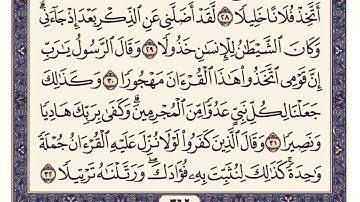 أَتَّخِذْ فُلَانًا خَلِيلًا ٢٨ لَّقَدْ أَضَلَّنِي عَنِ ٱلذِّكْرِ بَعْدَ إِذْ جَآءَنِيۗ
وَكَانَ ٱلشَّيْطَٰنُ لِلْإِنسَٰنِ خَذُولًا ٢٩ وَقَالَ ٱلرَّسُولُ يَٰرَبِّ
إِنَّ قَوْمِي ٱتَّخَذُوا۟ هَٰذَا ٱلْقُرْءَانَ مَهْجُورًا ٣٠ وَكَذَٰلِكَ
جَعَلْنَا لِكُلِّ نَبِيٍّ عَدُوًّا مِّنَ ٱلْمُجْرِمِينَۗ وَكَفَىٰ بِرَبِّكَ هَادِيًا
وَنَصِيرًا ٣١ وَقَالَ ٱلَّذِينَ كَفَرُوا۟ لَوْلَا نُزِّلَ عَلَيْهِ ٱلْقُرْءَانُ جُمْلَةً
وَٰحِدَةًۚ كَذَٰلِكَ لِنُثَبِّتَ بِهِۦ فُؤَادَكَۖ وَرَتَّلْنَٰهُ تَرْتِيلًا ٣٢
٣٦٢